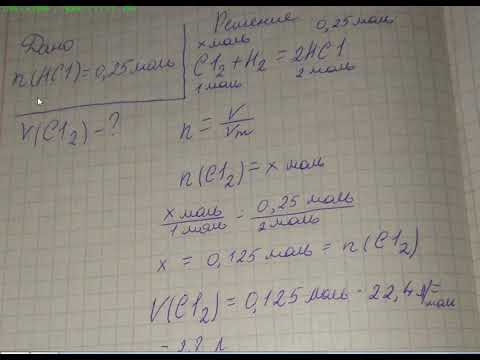 Дано
n(HCl)=0,25моль
V(Cl2)-?
Решение
x моль 0,25 моль
Cl2+H2=2HCl
1 моль 2 моль
n = V/Vm
n(Cl2)=x моль
x моль/1 моль = 0,25 моль/2 моль
x = 0,125 моль = n(Cl2)
V(Cl2)=0,125 моль · 22,4 л/моль=
= 2,8 л